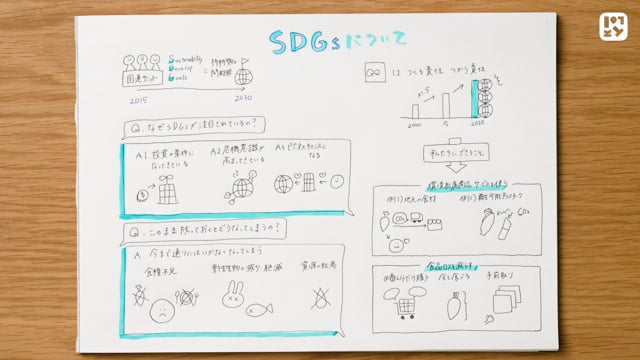 SDGsについて
国連サミット
Sustainability
Develop
Goals
=
2015
2030
Q. なぜSDGsが注目されているの?
A1. 投資の条件に
なってきている
A2. 危機意識が
高まってきている
A3. ビジネスチャンスに
なる
Q. このまま放っておくとどうなってしまうの?
A. 今まで通りにはいかなくなってしまう
食糧不足
野生生物の減少 絶滅
資源の枯渇
12. つくる責任 つかう責任
2000
今
2030
私たちにできること
環境配慮商品 サービスを使う
例1) 地元の食材
例2)
CO2
CO2
食品ロスを減らす
食べる
手前取り